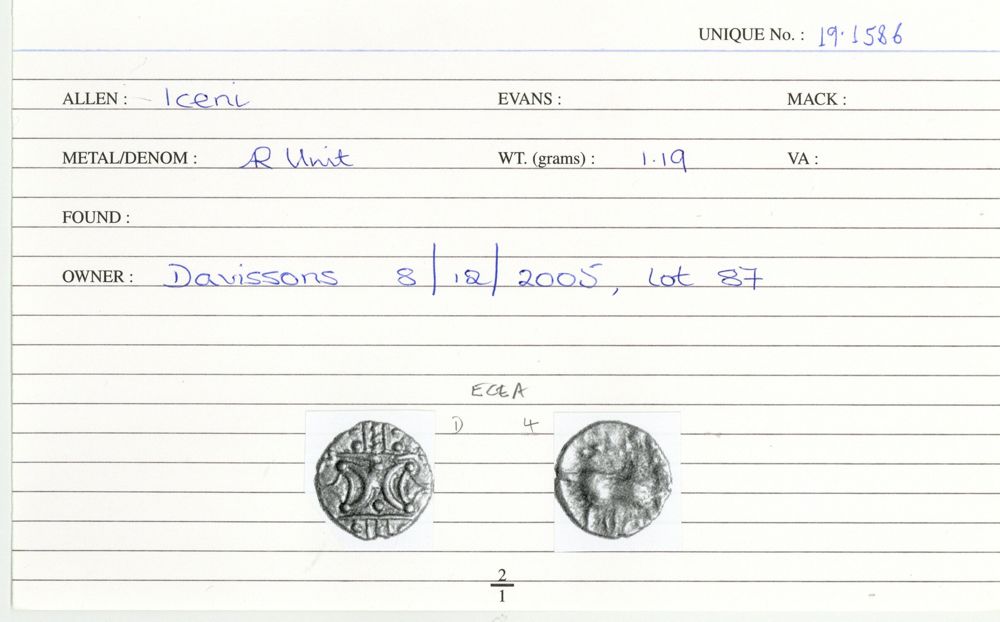 UNIQUE No. : 19.1586
ALLEN : Iceni EVANS : MACK :
METAL/DENOM : AR Unit WT. (grams) : 1.19 VA :
FOUND :
OWNER : Davissons 8/12/2005, Lot 87
ECE A
D 4
2
1